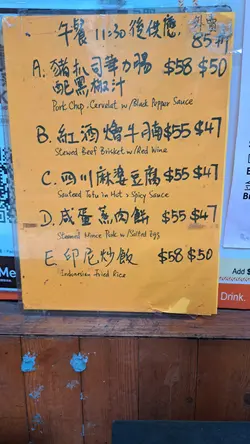 午餐 11:30 後供應, 外賣 85折
A. 豬扒司華力腸 $58 $50
配黑椒汁
Pork Chop, Cervelat w/Black Pepper Sauce
B. 紅酒燴牛腩 $55 $47
Stewed Beef Brisket w/Red Wine
C. 四川麻婆豆腐 $55 $47
Sauteed Tofu in Hot & Spicy Sauce
D. 咸蛋蒸肉餅 $55 $47
Steamed Mince Pork w/Salted Egg
E. 印尼炒飯 $58 $50
Indonesian Fried Rice
Me
Add $
Drink.